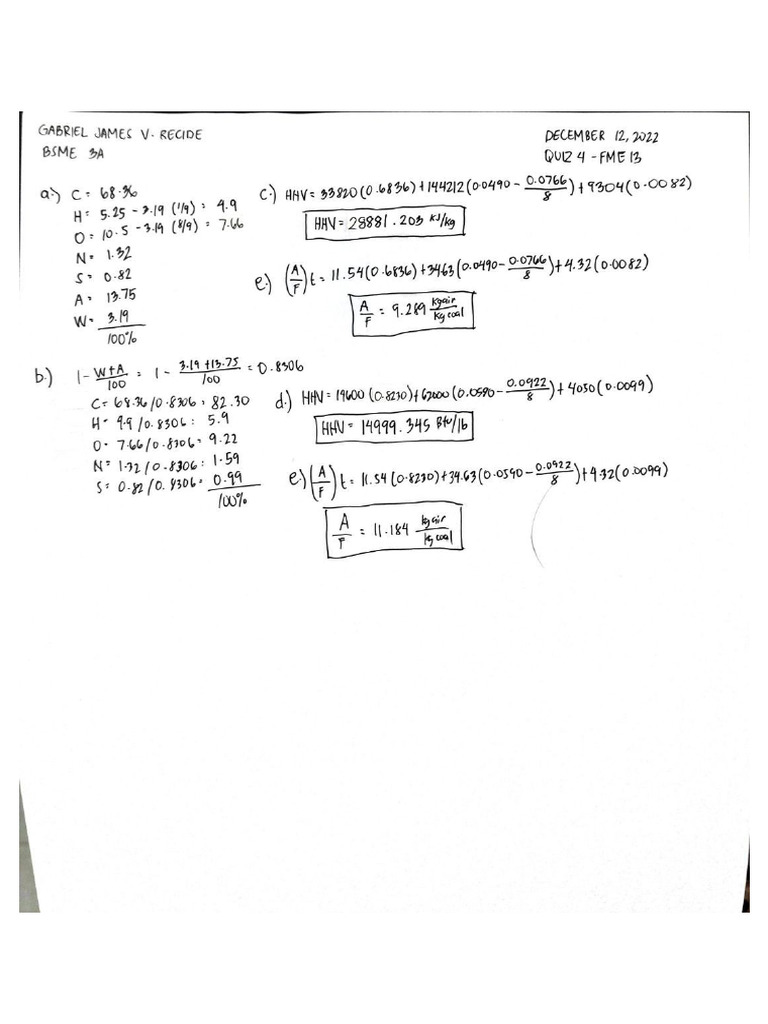 GABRIEL JAMES V. RECIDE
BSME 3A
DECEMBER 12, 2022
QUIZ 4 - FME 13
a.) C = 68.36
H = 5.25 - 3.19 (1/9) = 4.9
O = 10.5 - 3.19 (8/9) = 7.66
N = 1.32
S = 0.82
A = 13.75
W = 3.19
100%
c.) HHV = 33820(0.6836)+144212(0.0490 - 0.0766/8)+9304(0.0082)
HHV = 28881.203 KJ/kg
e.) (A/F)t = 11.54(0.6836)+3463(0.0490 - 0.0766/8)+4.32(0.0082)
A/F = 9.289 kg air/kg coal
b.) 1 - W+A/100 = 1 - 3.19+13.75/100 = 0.8306
C = 68.36/0.8306 = 82.30
H = 4.9/0.8306 : 5.9
O = 7.66/0.8306 = 9.22
N = 1.32/0.8306 : 1.59
S = 0.82/0.8306 = 0.99
100%
d.) HHV = 19600(0.8230)+62000(0.0590 - 0.0922/8)+4050(0.0099)
HHV = 14999.345 Btu/lb
e.) (A/F)t = 11.54(0.8230)+34.63(0.0590 - 0.0922/8)+4.32(0.0099)
A/F = 11.184 kg air/kg coal